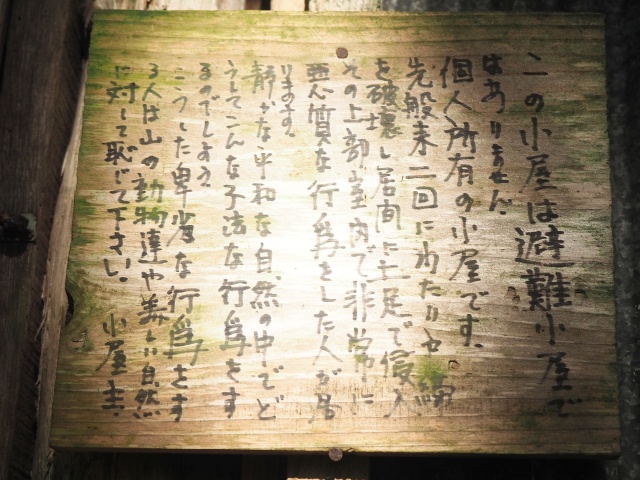 この小屋は避難小屋で
はありません。
個人所有の小屋です。
先般来二回にわたり
を破壊し居間に土足で侵入
その上部室内で非常に
悪質な行為をした人が居
ります。
静かな平和な自然の中でど
うしてこんな不法な行為をす
るのでしょう
こうした卑劣な行為をす
る人は山の動物達や美しい自然
に対して恥じて下さい。 小屋主